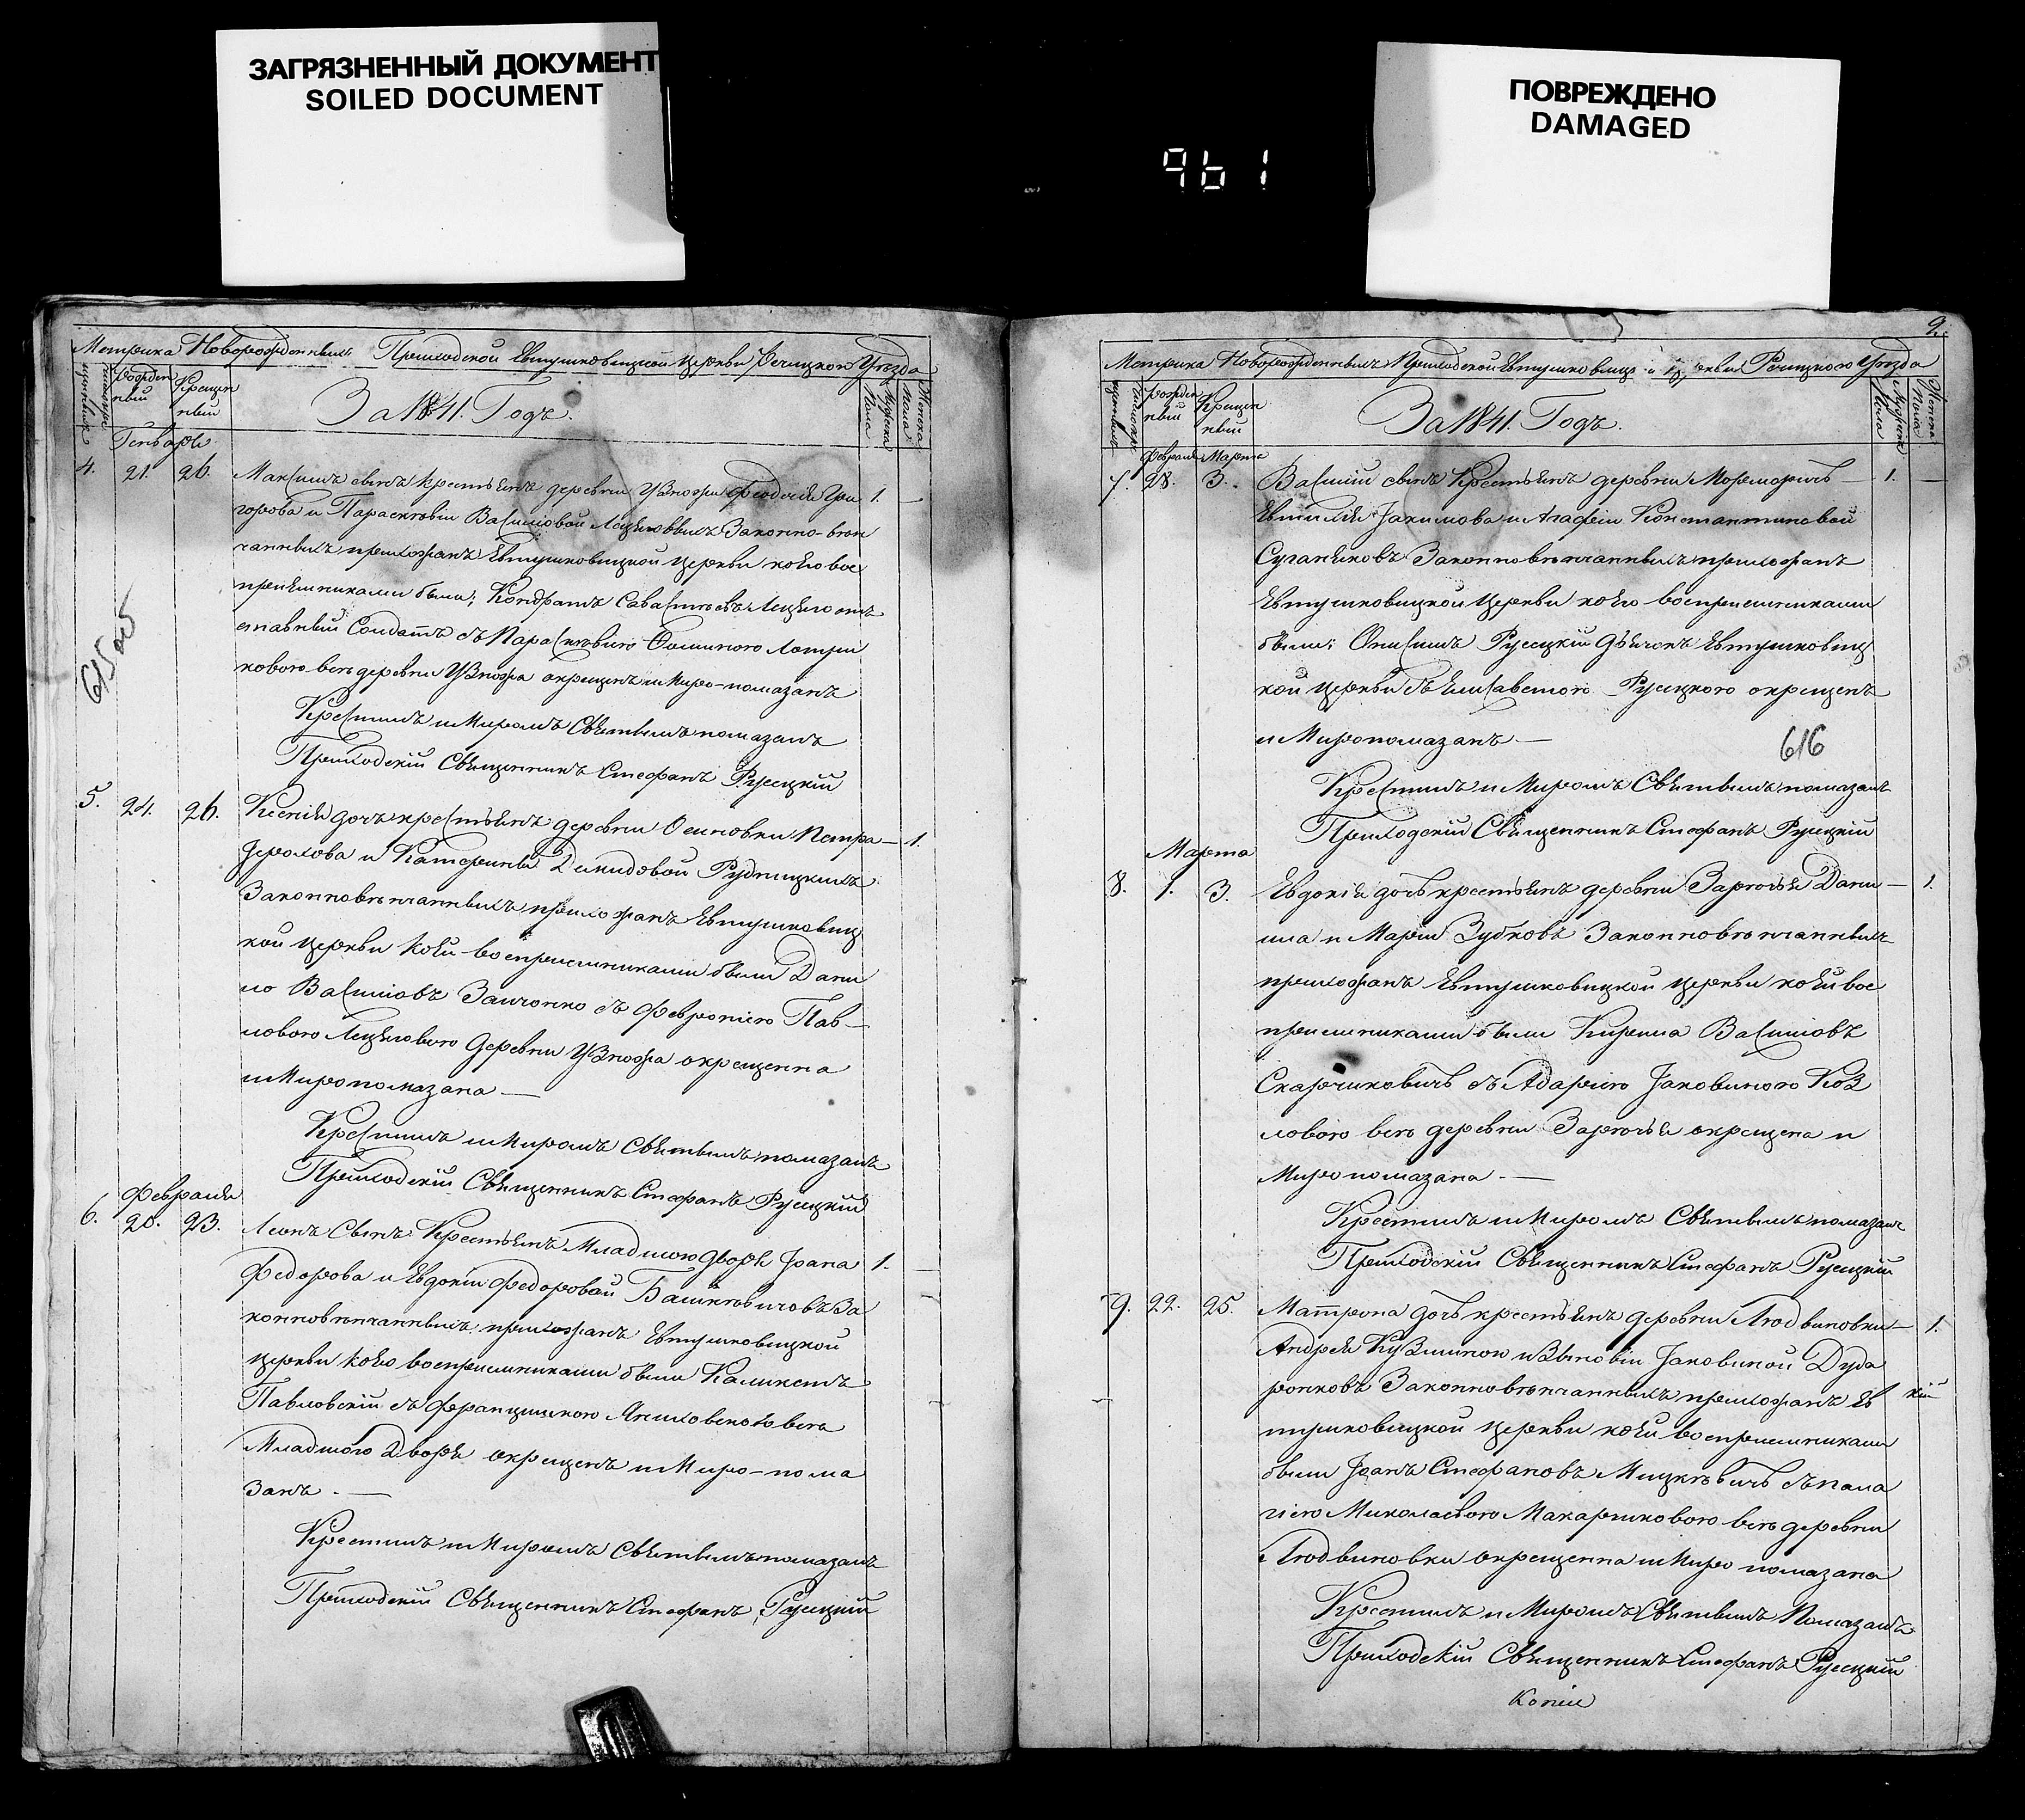 ЗАГРЯЗНЕННЫЙ ДОКУМЕНТ
SOILED DOCUMENT
ПОВРЕЖДЕНО
DAMAGED
961
Метрика Новорожденныхъ Приходской Евтушковицкой церкви Речицкого Уезда
рожден
ный
Крещен
ный
Мужеска
Пола
Женска
Пола
За 1841. Годъ.
Генваря
4. 21. 26. Максимъ сынъ Крестьянъ деревни Узножи Феодосія Гри 1. —
горова и Параскевіи Василіовой Законно-вен
чанныхъ прихожанъ Евтушковицкой церкви коего вос
пріемниками были; Кондратъ отъ
ставный Солдатъ съ Параскевіею
ковою всѣ деревни Узножа окрещенъ и Миро-помазанъ
Крестилъ и Миромъ Святымъ помазалъ
Приходскій Священникъ Стефанъ Русецкій
615 об
5. 24. 26. Ксенія дочь крестьянъ деревни Осиновки Петра — 1.
и Катерины Демидовой Рудницкихъ
Законновѣнчанныхъ прихожанъ Евтушковиц
кой церкви коей воспріемниками были Дани
ло Василіовъ съ Февроніею Пав—
ловою деревни Узножа окрещенна
и Миропомазана —
Крестилъ и Миромъ Святымъ помазалъ
Приходскій Священникъ Стефанъ Русецкій
Февраля
6. 20. 23. Леонъ Сынъ Крестьянъ Младшого двора Іоана 1. —
Федорова и Евдокіи Федоровой За
конновѣнчанныхъ прихожанъ Евтушковицкой
церкви коего воспріемниками были Каликстъ
Павловскій съ всѣ
Младшого Двора окрещенъ и Миро-пома
занъ. —
Крестилъ и Миромъ Святымъ помазалъ
Приходскій Священникъ Стефанъ Русецкій
9
Метрика Новорожденныхъ Приходской Евтушковицкой церкви Речицкого Уезда
рожден
ный
Крещен
ный
Мужеска
Пола
Женска
Пола
За 1841. Годъ.
Февраля Марта
7. 28. 3. Василій сынъ Крестьянъ деревни — 1. —
Якимова и Агафіи Константиновой
Законновѣнчанныхъ прихожанъ
Евтушковицкой церкви коего воспріемниками
были; Онисимъ Русецкій Дьячокъ Евтушковиц
кой церкви съ Елисаветою Русецкою окрещенъ
и Миропомазанъ —
616
Крестилъ и Миромъ Святымъ помазалъ
Приходскій Священникъ Стефанъ Русецкій
Марта
8. 1. 3. Евдокія дочь крестьянъ деревни Заречья Дани — 1.
ила и Маріи Зубковъ Законновѣнчанныхъ
прихожанъ Евтушковицкой церкви коей вос
пріемниками были Кирила Василіовъ
съ Адаріею Яковиною Коз
ловою всѣ деревни Заречья окрещена и
Миропомазана. —
Крестилъ и Миромъ Святымъ помазалъ
Приходскій Священникъ Стефанъ Русецкій
9. 22. 25. Матрона дочь крестьянъ деревни Людвиновки — 1.
Андрея Кузминого и Зѣновіи Яковиной Дуда
ронковъ Законновѣнчанныхъ прихожанъ Ев
тушковицкой церкви коей воспріемниками
были Іоанъ Стефановъ Мицкѣвичъ съ Пала
гіею Миколаевою Макарчиковою всѣ деревни
Людвиновки окрещенна и Миро помазана
Крестилъ и Миромъ Святымъ Помазалъ
Приходскій Священникъ Стефанъ Русецкій